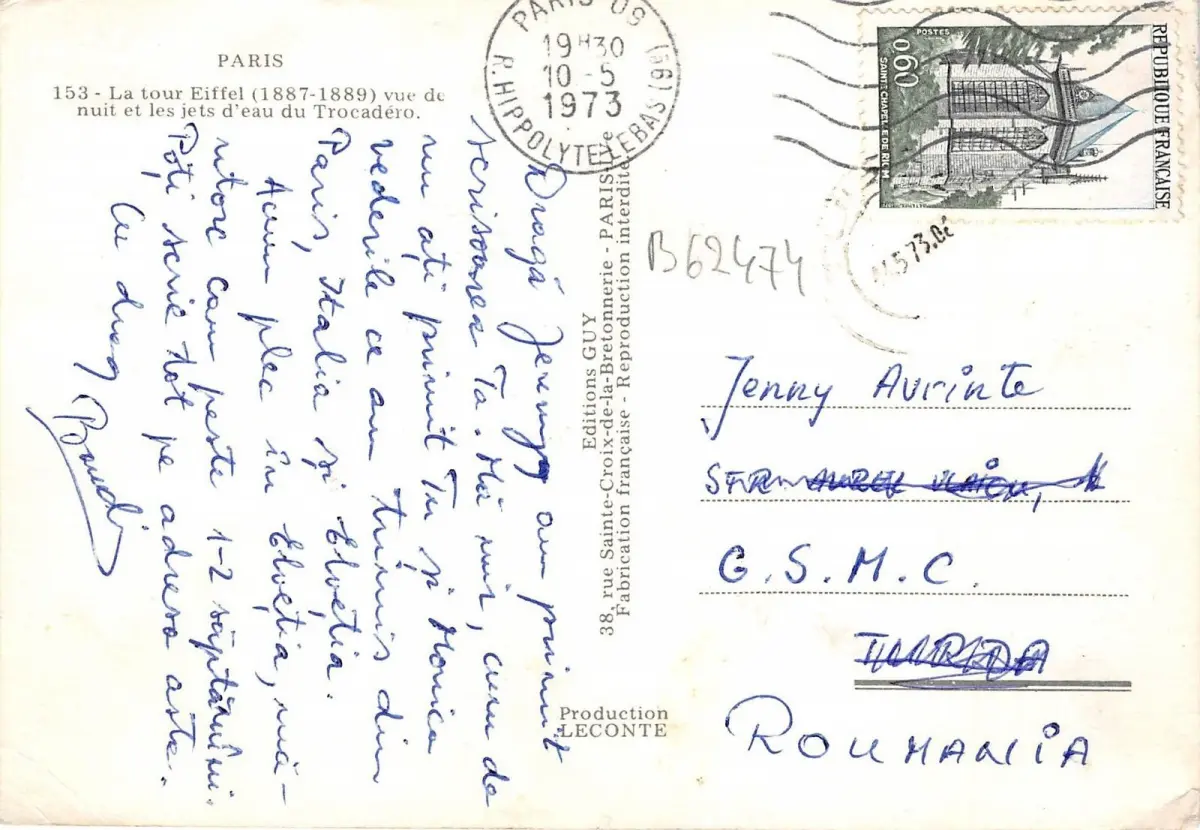 PARIS
153 - La tour Eiffel (1887-1889) vue de
nuit et les jets d'eau du Trocadéro.
PARIS 09
19H30
10-5
1973
R.HIPPOLYTE LEBAS (9E)
POSTES
0,60
SAINTE CHAPELLE DE RIOM
REPUBLIQUE FRANÇAISE
5 73.
B62474
Dragă Jenny am primit
scrisoarea Ta. Mă mir, cum de
nu ați primit Tu și Monica
vederile ce am trimis din
Paris, Italia și Elveția.
Acum plec în Elveția, mă
ntorc cam peste 1-2 săptămîni.
Poți scrie tot pe adresa asta.
Cu drag
Editions GUY
38, rue Sainte-Croix-de-la-Bretonnerie - PARIS-4e
Fabrication française - Reproduction interdite.
Production
LECONTE
Jenny Avrinte
STR. AUREL VLAICU,
G.S.M.C.
TURDA
ROUMANIA